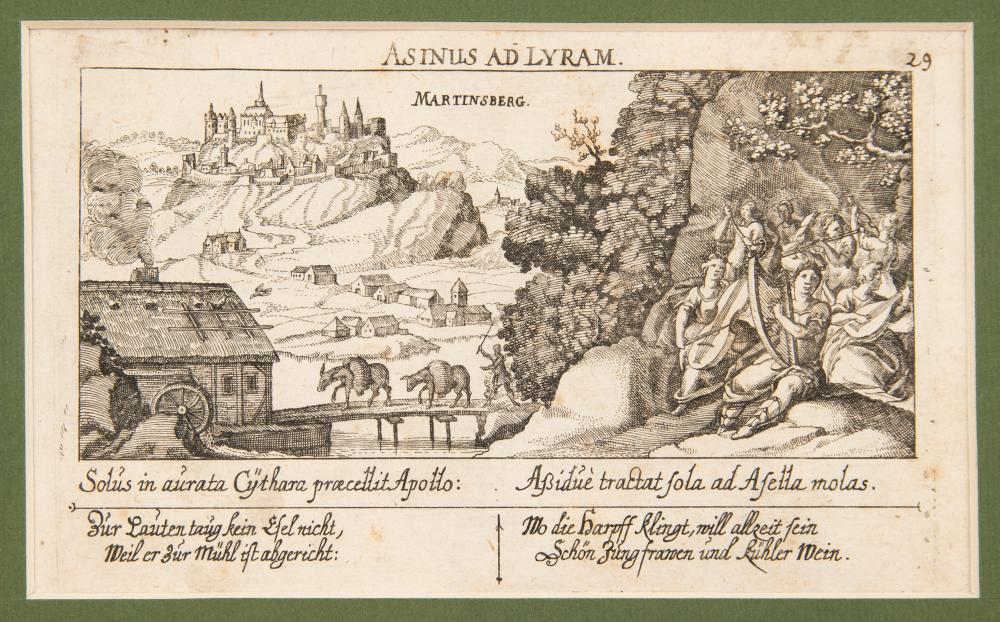 ASINUS AD LYRAM.
29
MARTINSBERG.
Solus in aurata Cÿthara præcellit Apollo:
Aßiduè tractat sola ad Asella molas.
Zur Lauten taug kein Esel nicht,
Weil er zur Mühl ist abgericht:
Wo die Harpff klingt, will allzeit sein
Schön Jungfrawen und kühler Wein.